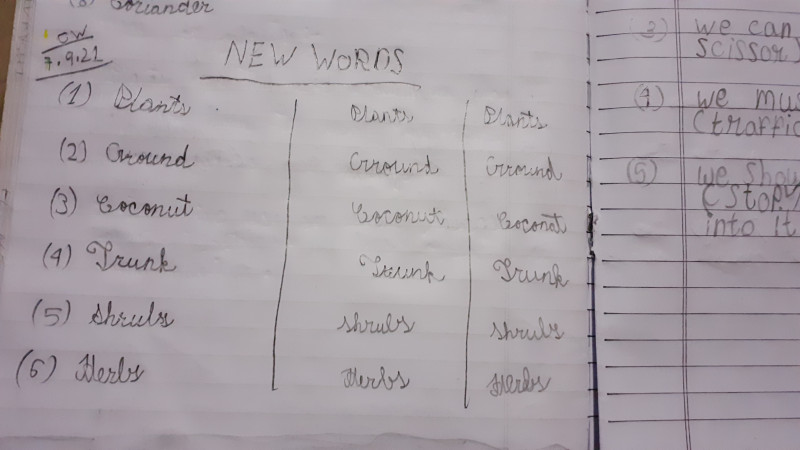 (8) Coriander
CW
7.9.21
NEW WORDS
(1) Plants Plants Plants
(2) Ground Ground Ground
(3) Coconut Coconut Coconut
(4) Trunk Trunk Trunk
(5) Shrubs Shrubs Shrubs
(6) Herbs Herbs Herbs
(3) we can
scissor
(4) we mus
(traffic
(5) we shou
(Story
into It